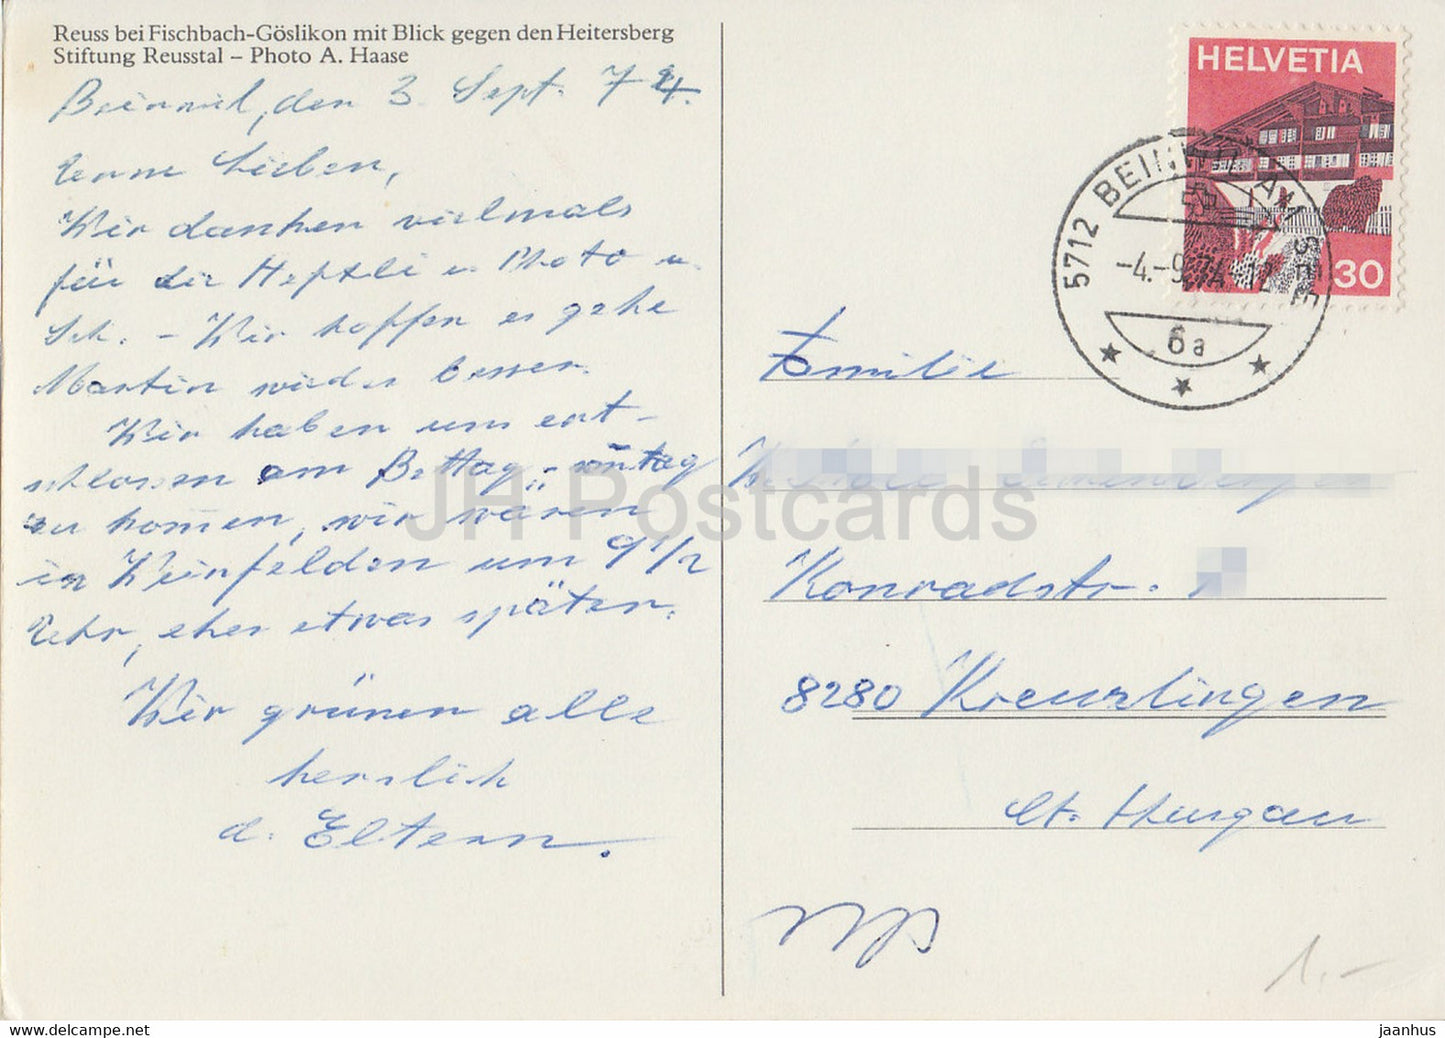 Reuss bei Fischbach-Göslikon mit Blick gegen den Heitersberg
Stiftung Reusstal – Photo A. Haase
Beinwil, den 3 Sept. 74.
Lieben,
Wir danken vielmals
für die Heftli u Photo u.
Sch. – Wir hoffen es gehe
Martin wieder besser.
Wir haben uns ent-
schlossen am Bettag
zu kommen, wir wären
in Weinfelden um 9 1/2
Uhr, eher etwas später.
Wir grüssen alle
herzlich
d. Eltern.
HELVETIA
30
5712 BEINWIL AM SEE
-4.-9.74-12
6a
Familie
Konradstr.
8280 Kreuzlingen
Kt. Thurgau
1.-
JH Postcards
jaanhus